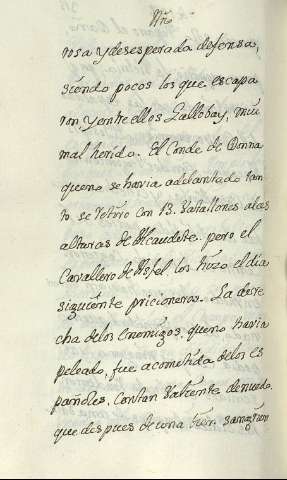 rosa y desesperada defensa,
siendo pocos los que escapa
ron, y entre ellos Zallobay, mui
mal herido. El Conde de Donna
queno se havia adelantado tan
to se retiro con 13. Vatallones alas
alturas de Alcaudete. pero el
Cavallero de Asfel los hizo el dia
siguiente pricioneros. La dere
cha delos Enemigos, queno havia
peleado, fue acometida delos es
pañoles. Contan Valiente denuedo.
que despues de una